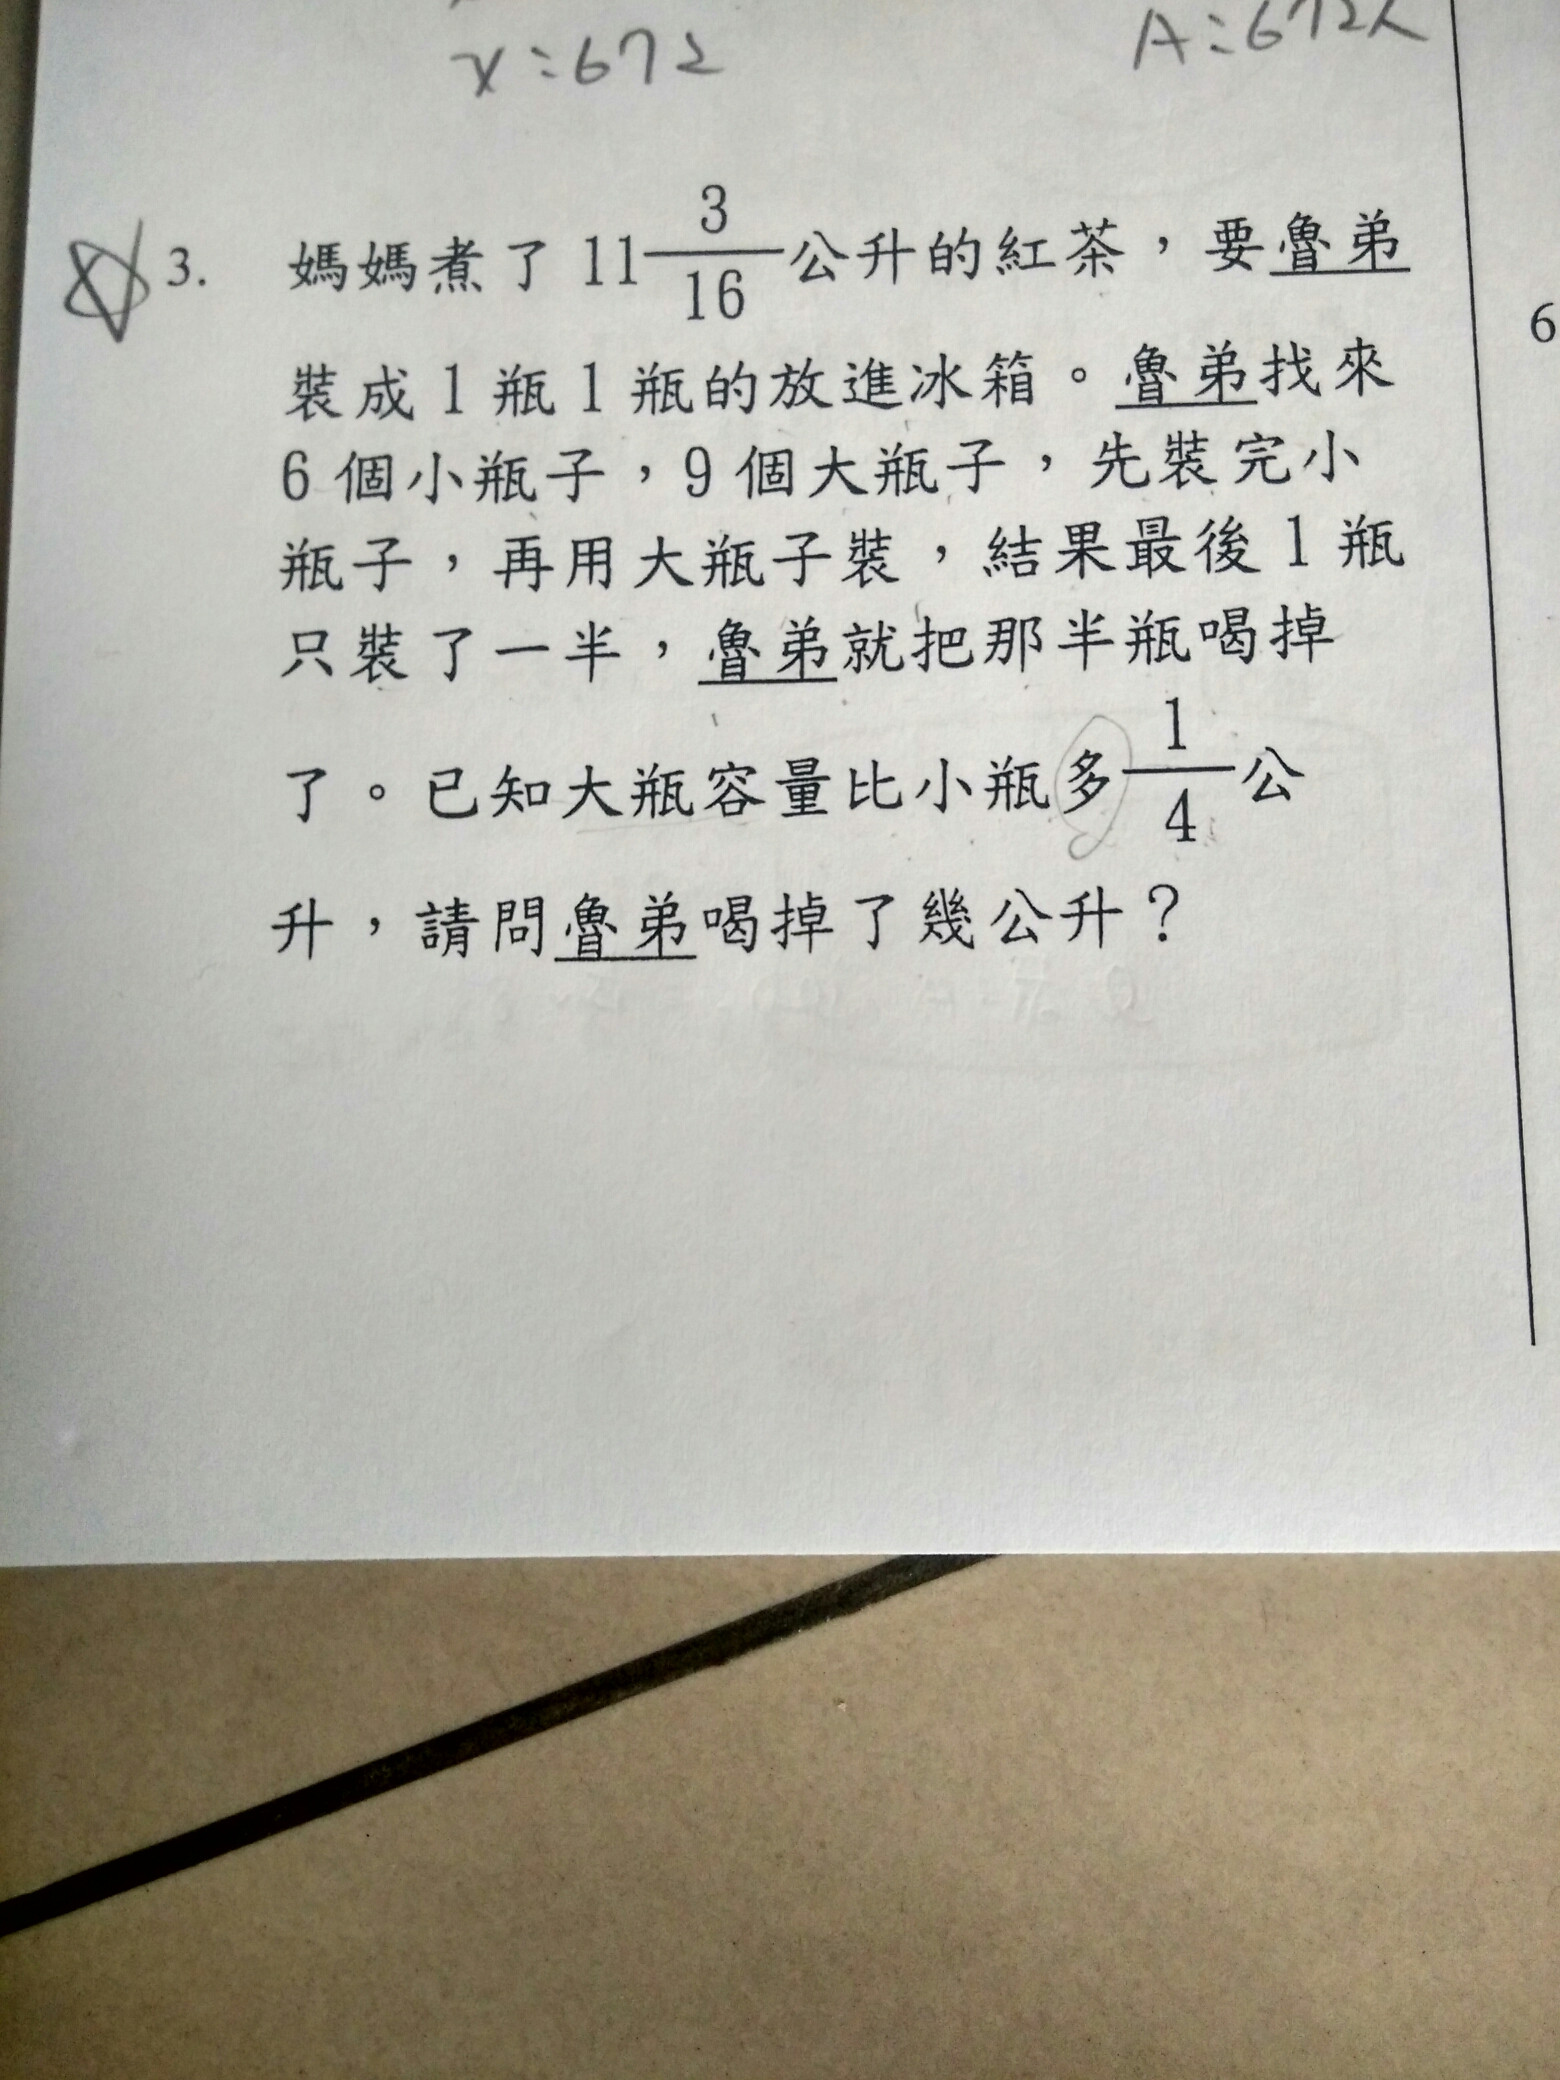 x=672
A:672人
3. 媽媽煮了 11 3/16 公升的紅茶，要魯弟
裝成 1 瓶 1 瓶的放進冰箱。魯弟找來
6 個小瓶子，9 個大瓶子，先裝完小
瓶子，再用大瓶子裝，結果最後 1 瓶
只裝了一半，魯弟就把那半瓶喝掉
了。已知大瓶容量比小瓶多 1/4 公
升，請問魯弟喝掉了幾公升？
6